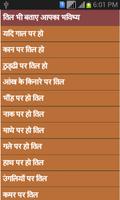 6:01 PM
तिल भी बताए आपका भविष्य
यदि गाल पर हो
कान पर तिल हो
ठुड्ढी पर तिल हो
आंख के किनारे पर तिल
भौंह पर हो तिल
नाक पर हो तिल
माथे पर हो तिल
गले पर हो तिल
हाथ पर हो तिल
उंगलियों पर तिल
कमर पर तिल